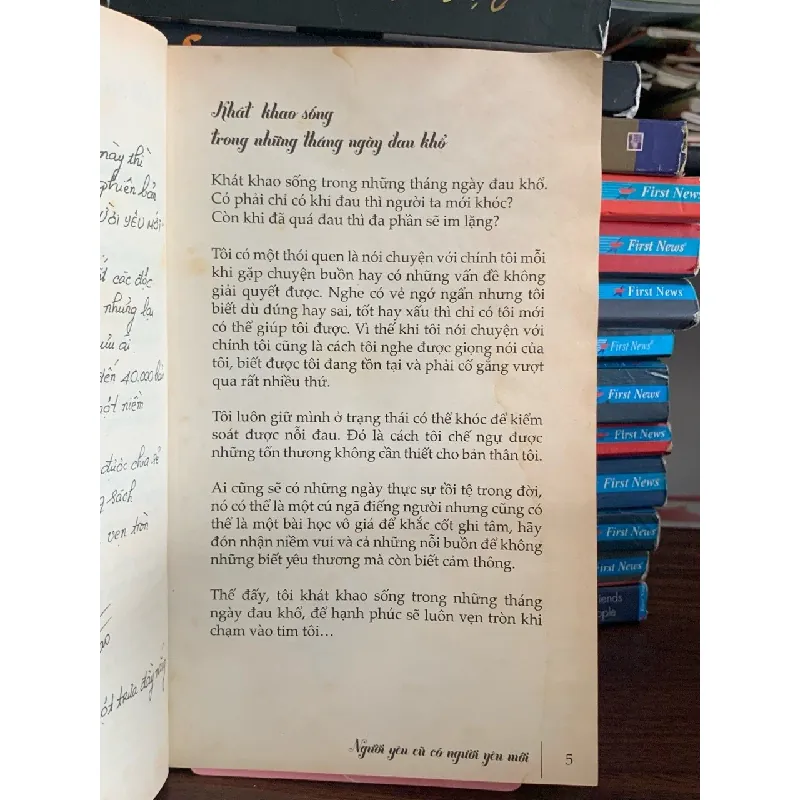 này thì
phiên bản
các độc
nhưng lại
đến 40.000 bản
một niềm
được chia sẻ
sách
vẹn tròn
một trưa đầy nắng
Khát khao sống
trong những tháng ngày đau khổ
Khát khao sống trong những tháng ngày đau khổ.
Có phải chỉ có khi đau thì người ta mới khóc?
Còn khi đã quá đau thì đa phần sẽ im lặng?
Tôi có một thói quen là nói chuyện với chính tôi mỗi
khi gặp chuyện buồn hay có những vấn đề không
giải quyết được. Nghe có vẻ ngớ ngẩn nhưng tôi
biết dù đúng hay sai, tốt hay xấu thì chỉ có tôi mới
có thể giúp tôi được. Vì thế khi tôi nói chuyện với
chính tôi cũng là cách tôi nghe được giọng nói của
tôi, biết được tôi đang tồn tại và phải cố gắng vượt
qua rất nhiều thứ.
Tôi luôn giữ mình ở trạng thái có thể khóc để kiểm
soát được nỗi đau. Đó là cách tôi chế ngự được
những tổn thương không cần thiết cho bản thân tôi.
Ai cũng sẽ có những ngày thực sự tồi tệ trong đời,
nó có thể là một cú ngã điếng người nhưng cũng có
thể là một bài học vô giá để khắc cốt ghi tâm, hãy
đón nhận niềm vui và cả những nỗi buồn để không
những biết yêu thương mà còn biết cảm thông.
Thế đấy, tôi khát khao sống trong những tháng
ngày đau khổ, để hạnh phúc sẽ luôn vẹn tròn khi
chạm vào tim tôi…
Người yêu cũ có người yêu mới
5
First News
First News
First News
First News
First News
First News
First News
First News
First News